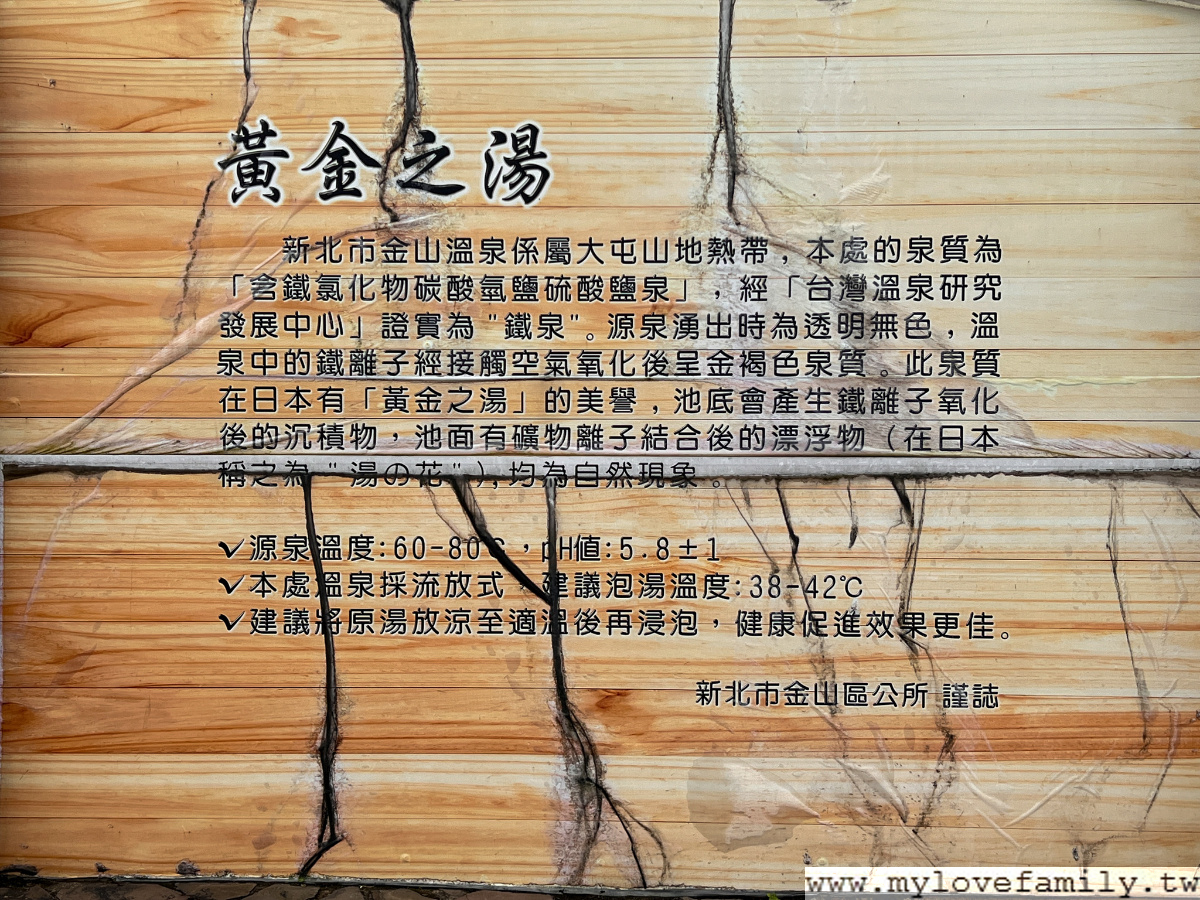 黃金之湯
新北市金山溫泉係屬大屯山地熱帶，本處的泉質為
「含鐵氯化物碳酸氫鹽硫酸鹽泉」，經「台灣溫泉研究
發展中心」證實為"鐵泉"。源泉湧出時為透明無色，溫
泉中的鐵離子經接觸空氣氧化後呈金褐色泉質。此泉質
在日本有「黃金之湯」的美譽，池底會產生鐵離子氧化
後的沉積物，池面有礦物離子結合後的漂浮物（在日本
稱之為"湯の花"），均為自然現象。
✓源泉溫度:60-80℃，pH值:5.8±1
✓本處溫泉採流放式，建議泡湯溫度:38-42℃
✓建議將原湯放涼至適溫後再浸泡，健康促進效果更佳。
新北市金山區公所 謹誌
www.mylovefamily.tw